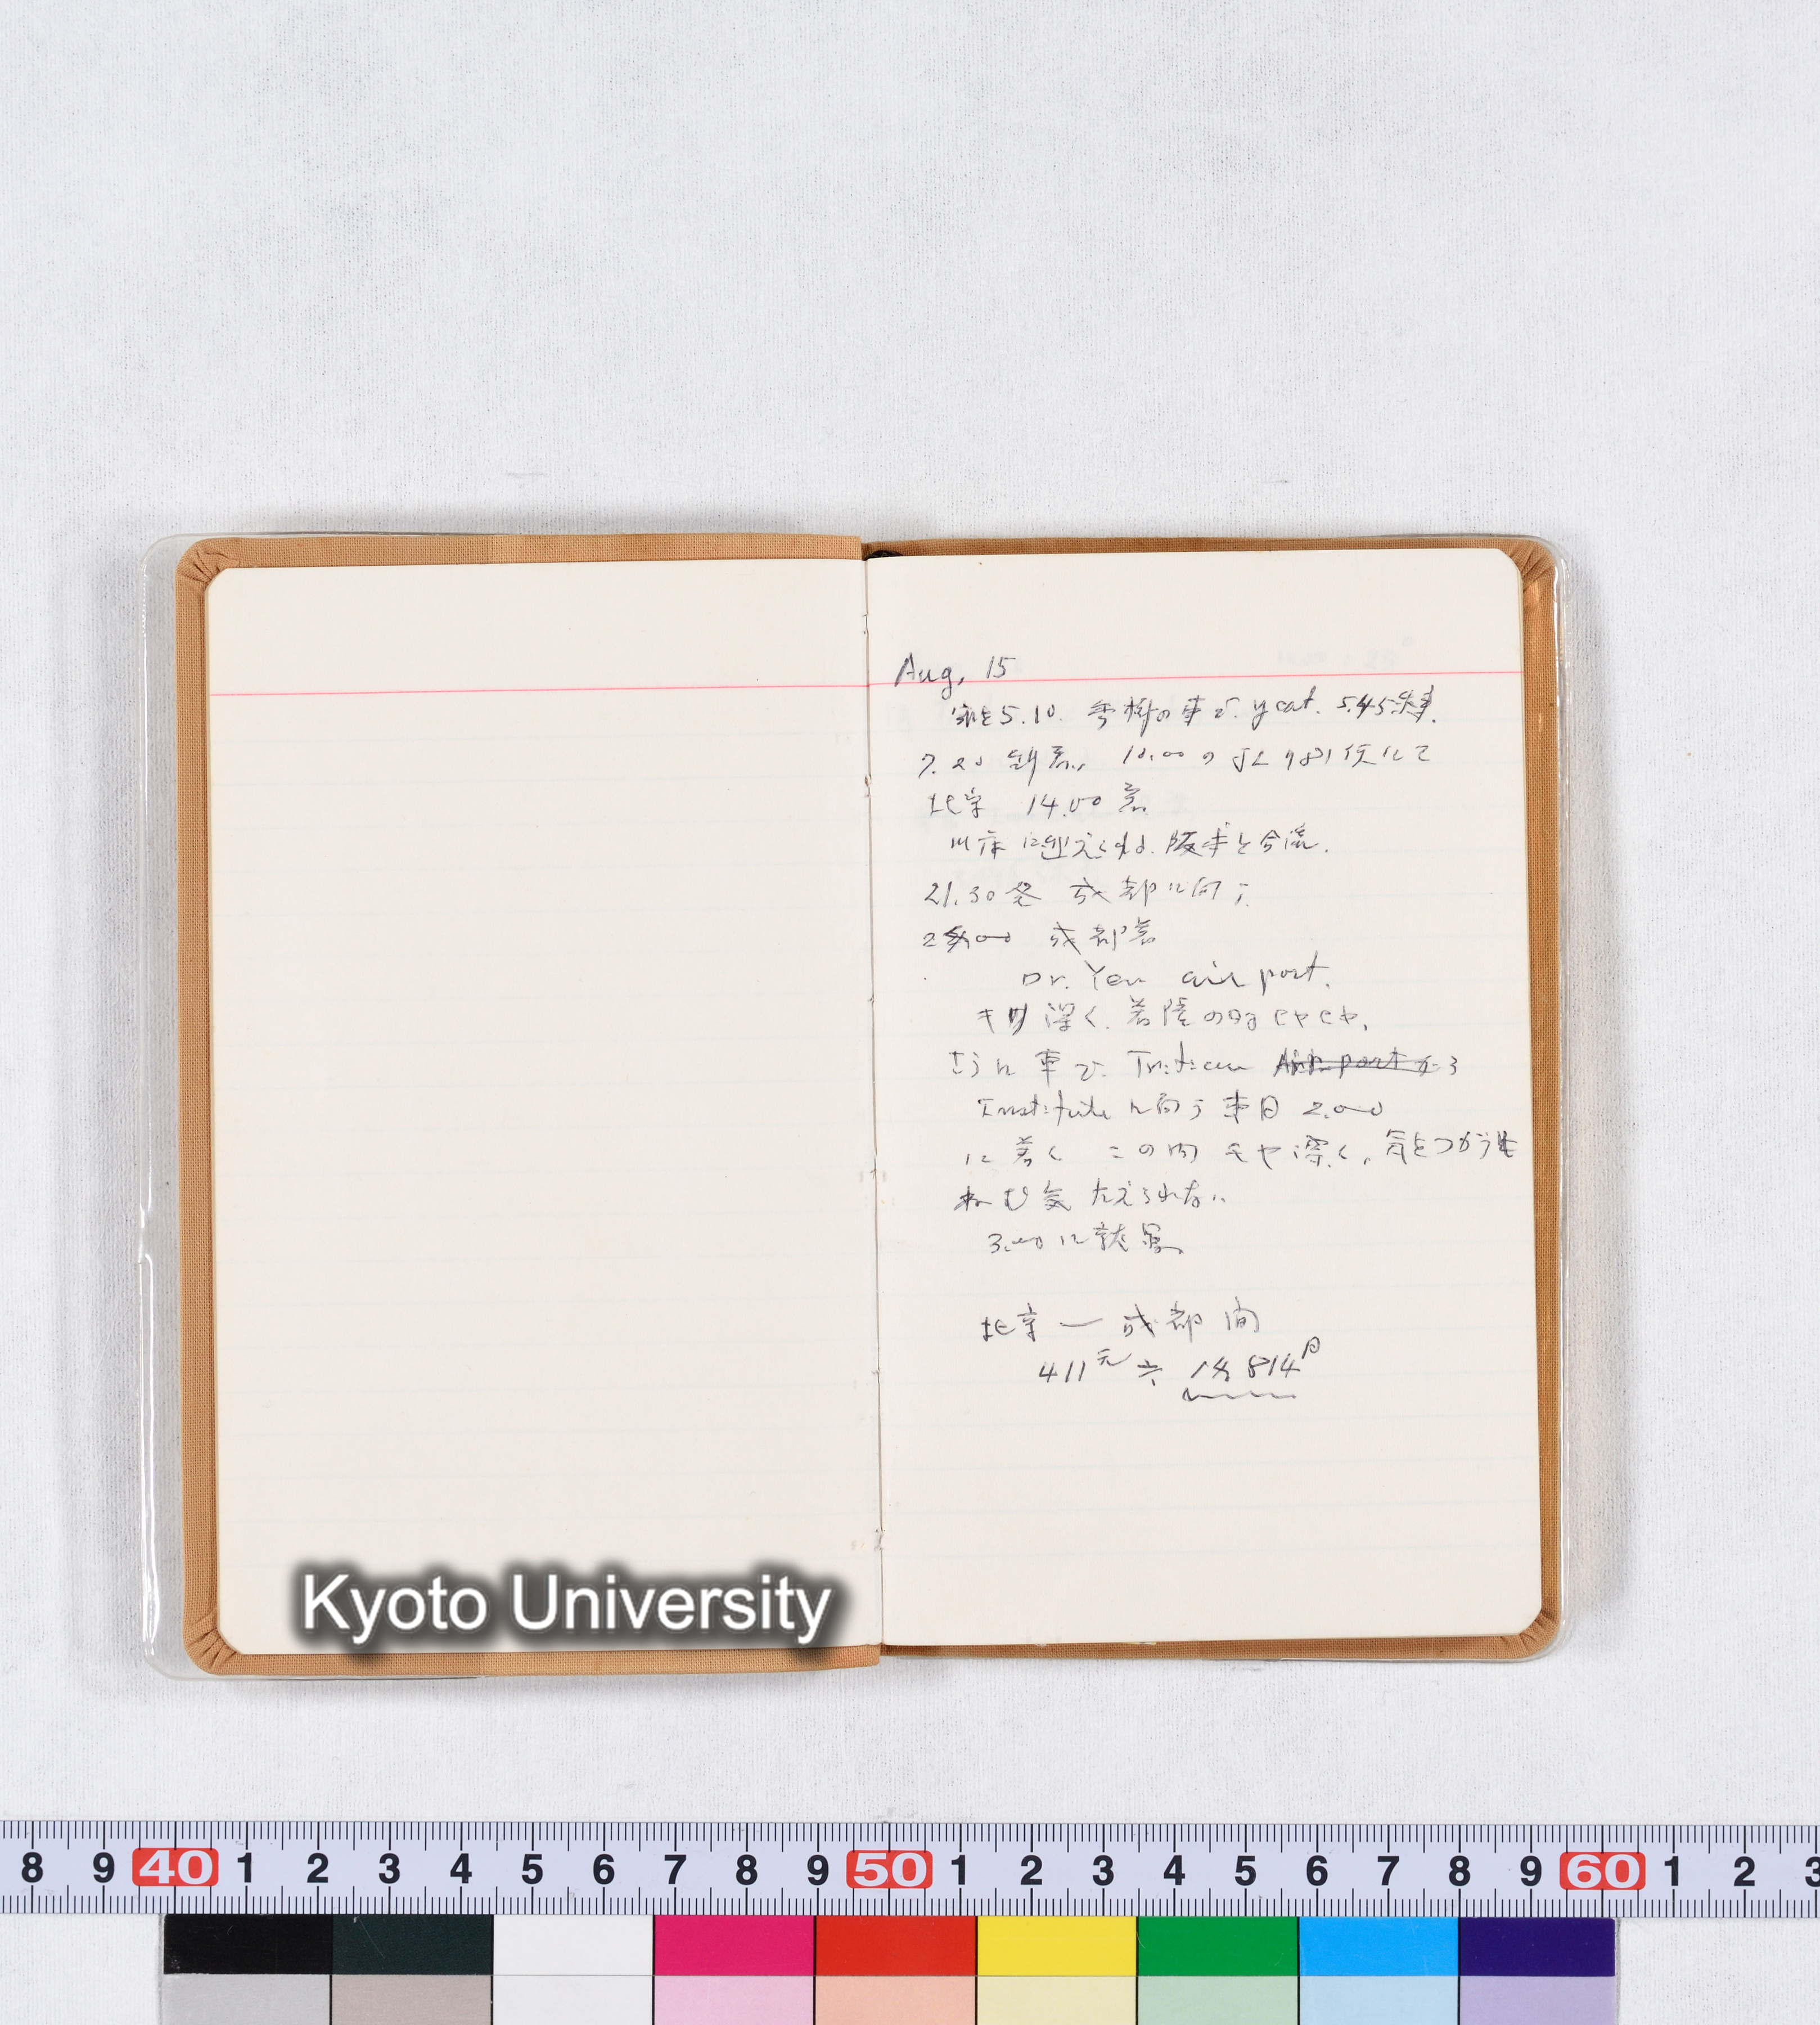 Aug, 15
家を5.10. 秀樹の車で. ycat. 5.45発車.
7.20 成田着, 10.00 の JL 781 便にて
北京 14.00 着
に迎えられる. 阪本と合流.
21.30 発 成都に向う.
成都着
Dr. Yen air port.
キリ深く. 着陸の時ヒヤヒヤ.
さらに車で. Triticeae
Institute に向う 2.00
に着く この間 モヤ深く, 気をつかうも
ねむ気 たえられない
3.00 に就寝
北京 — 成都 間
411元 ≒ 814円
Kyoto University
8 9 40 1 2 3 4 5 6 7 8 9 50 1 2 3 4 5 6 7 8 9 60 1 2 3